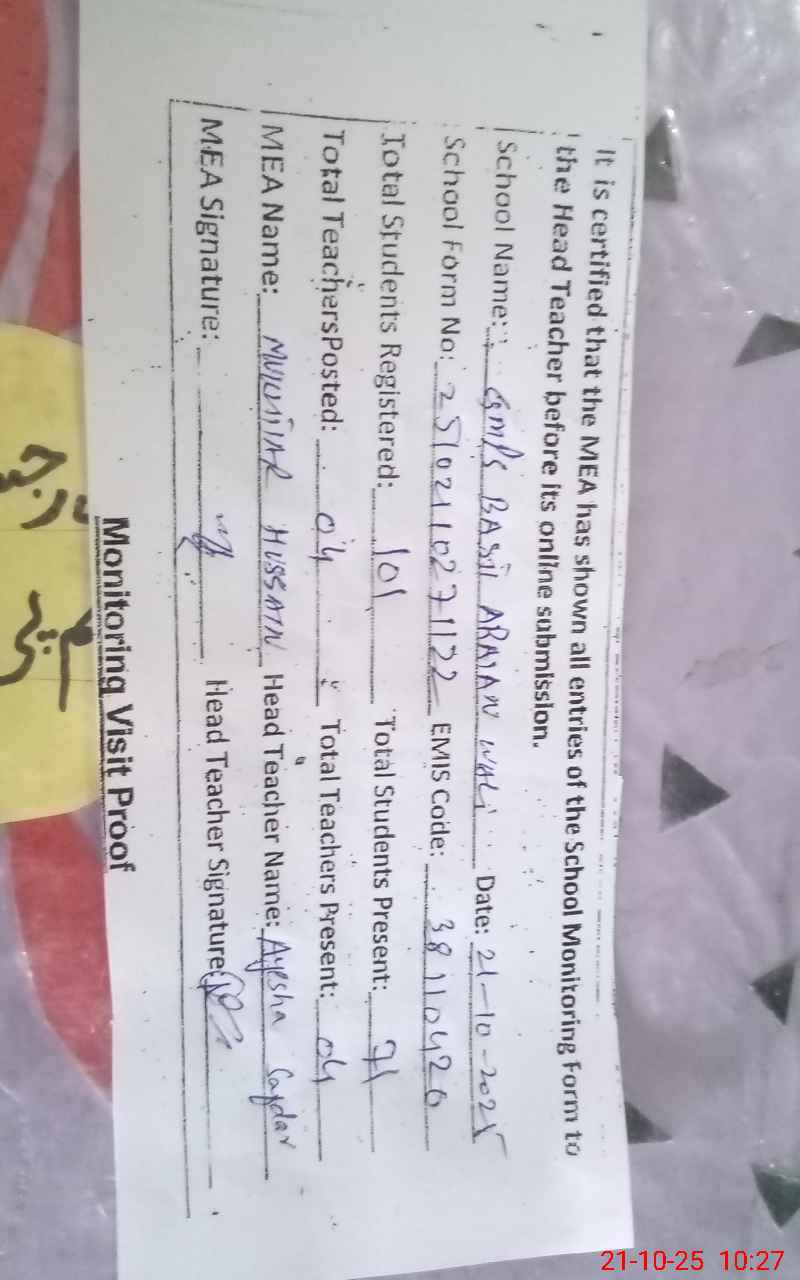 It is certified that the MEA has shown all entries of the School Monitoring Form to
the Head Teacher before its online submission.
School Name: GMPS BASTI ARAIAN WALI Date: 21-10-2025
School Form No: 2510211027 1122 EMIS Code: 38110420
Total Students Registered: 101 Total Students Present: 91
Total TeachersPosted: 04 Total Teachers Present: 04
MEA Name: MUKHTIAR HUSSAIN Head Teacher Name: Ayesha Safdar
MEA Signature: Head Teacher Signature:
Monitoring Visit Proof
21-10-25 10:27